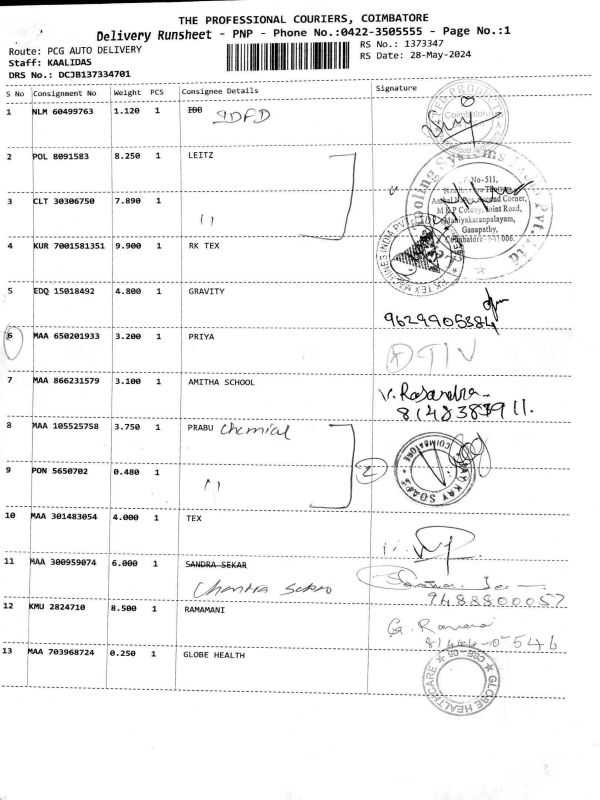 THE PROFESSIONAL COURIERS, COIMBATORE
Delivery Runsheet - PNP - Phone No.:0422-3505555 - Page No.:1
Route: PCG AUTO DELIVERY
RS No.: 1373347
Staff: KAALIDAS
RS Date: 28-May-2024
DRS No.: DCJB137334701
S No Consignment No Weight PCS Consignee Details Signature
1 NLM 60499763 1.120 1 IDB IDFD
Coimbatore
2 POL 8091583 8.250 1 LEITZ
No-511,
3 CLT 30306750 7.890 1 11
Maniyakaranpalayam,
Ganapathy,
Coimbatore - 641006.
4 KUR 7001581351 9.900 1 RK TEX
5 EDQ 15018492 4.800 1 GRAVITY
9629905384
6 MAA 650201933 3.200 1 PRIYA
7 MAA 866231579 3.100 1 AMITHA SCHOOL
8148383911.
8 MAA 105525758 3.750 1 PRABU chemical
COIMBATORE
9 PON 5650702 0.480 1 11 2
KAY SOAPS
10 MAA 301483054 4.000 1 TEX
11 MAA 300959074 6.000 1 SANDRA SEKAR
9488800057
12 KMU 2824710 8.500 1 RAMAMANI
13 MAA 703968724 0.250 1 GLOBE HEALTH
GLOBE HEALTHCARE